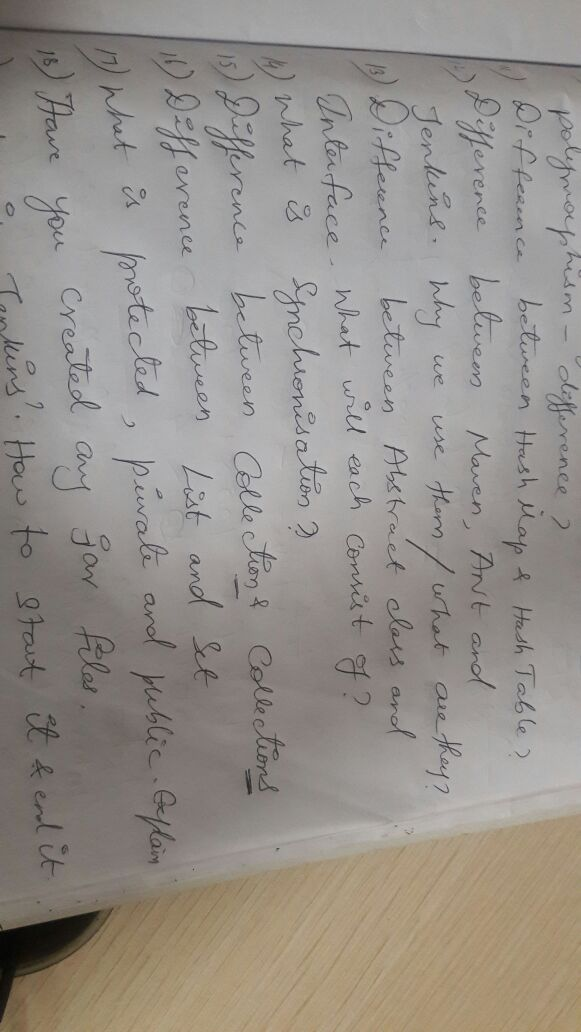 polymorphism - difference?
11) Difference between HashMap & HashTable?
12) Difference between Maven, ANT and
Jenkins. Why we use them / what are they?
13) Difference between Abstract class and
Interface. What will each consist of?
14) What is Synchronisation?
15) Difference between Collection & Collections
16) Difference between List and Set
17) What is protected, private and public. Explain
18) Have you created any jar files.
Jenkins? How to start it & end it